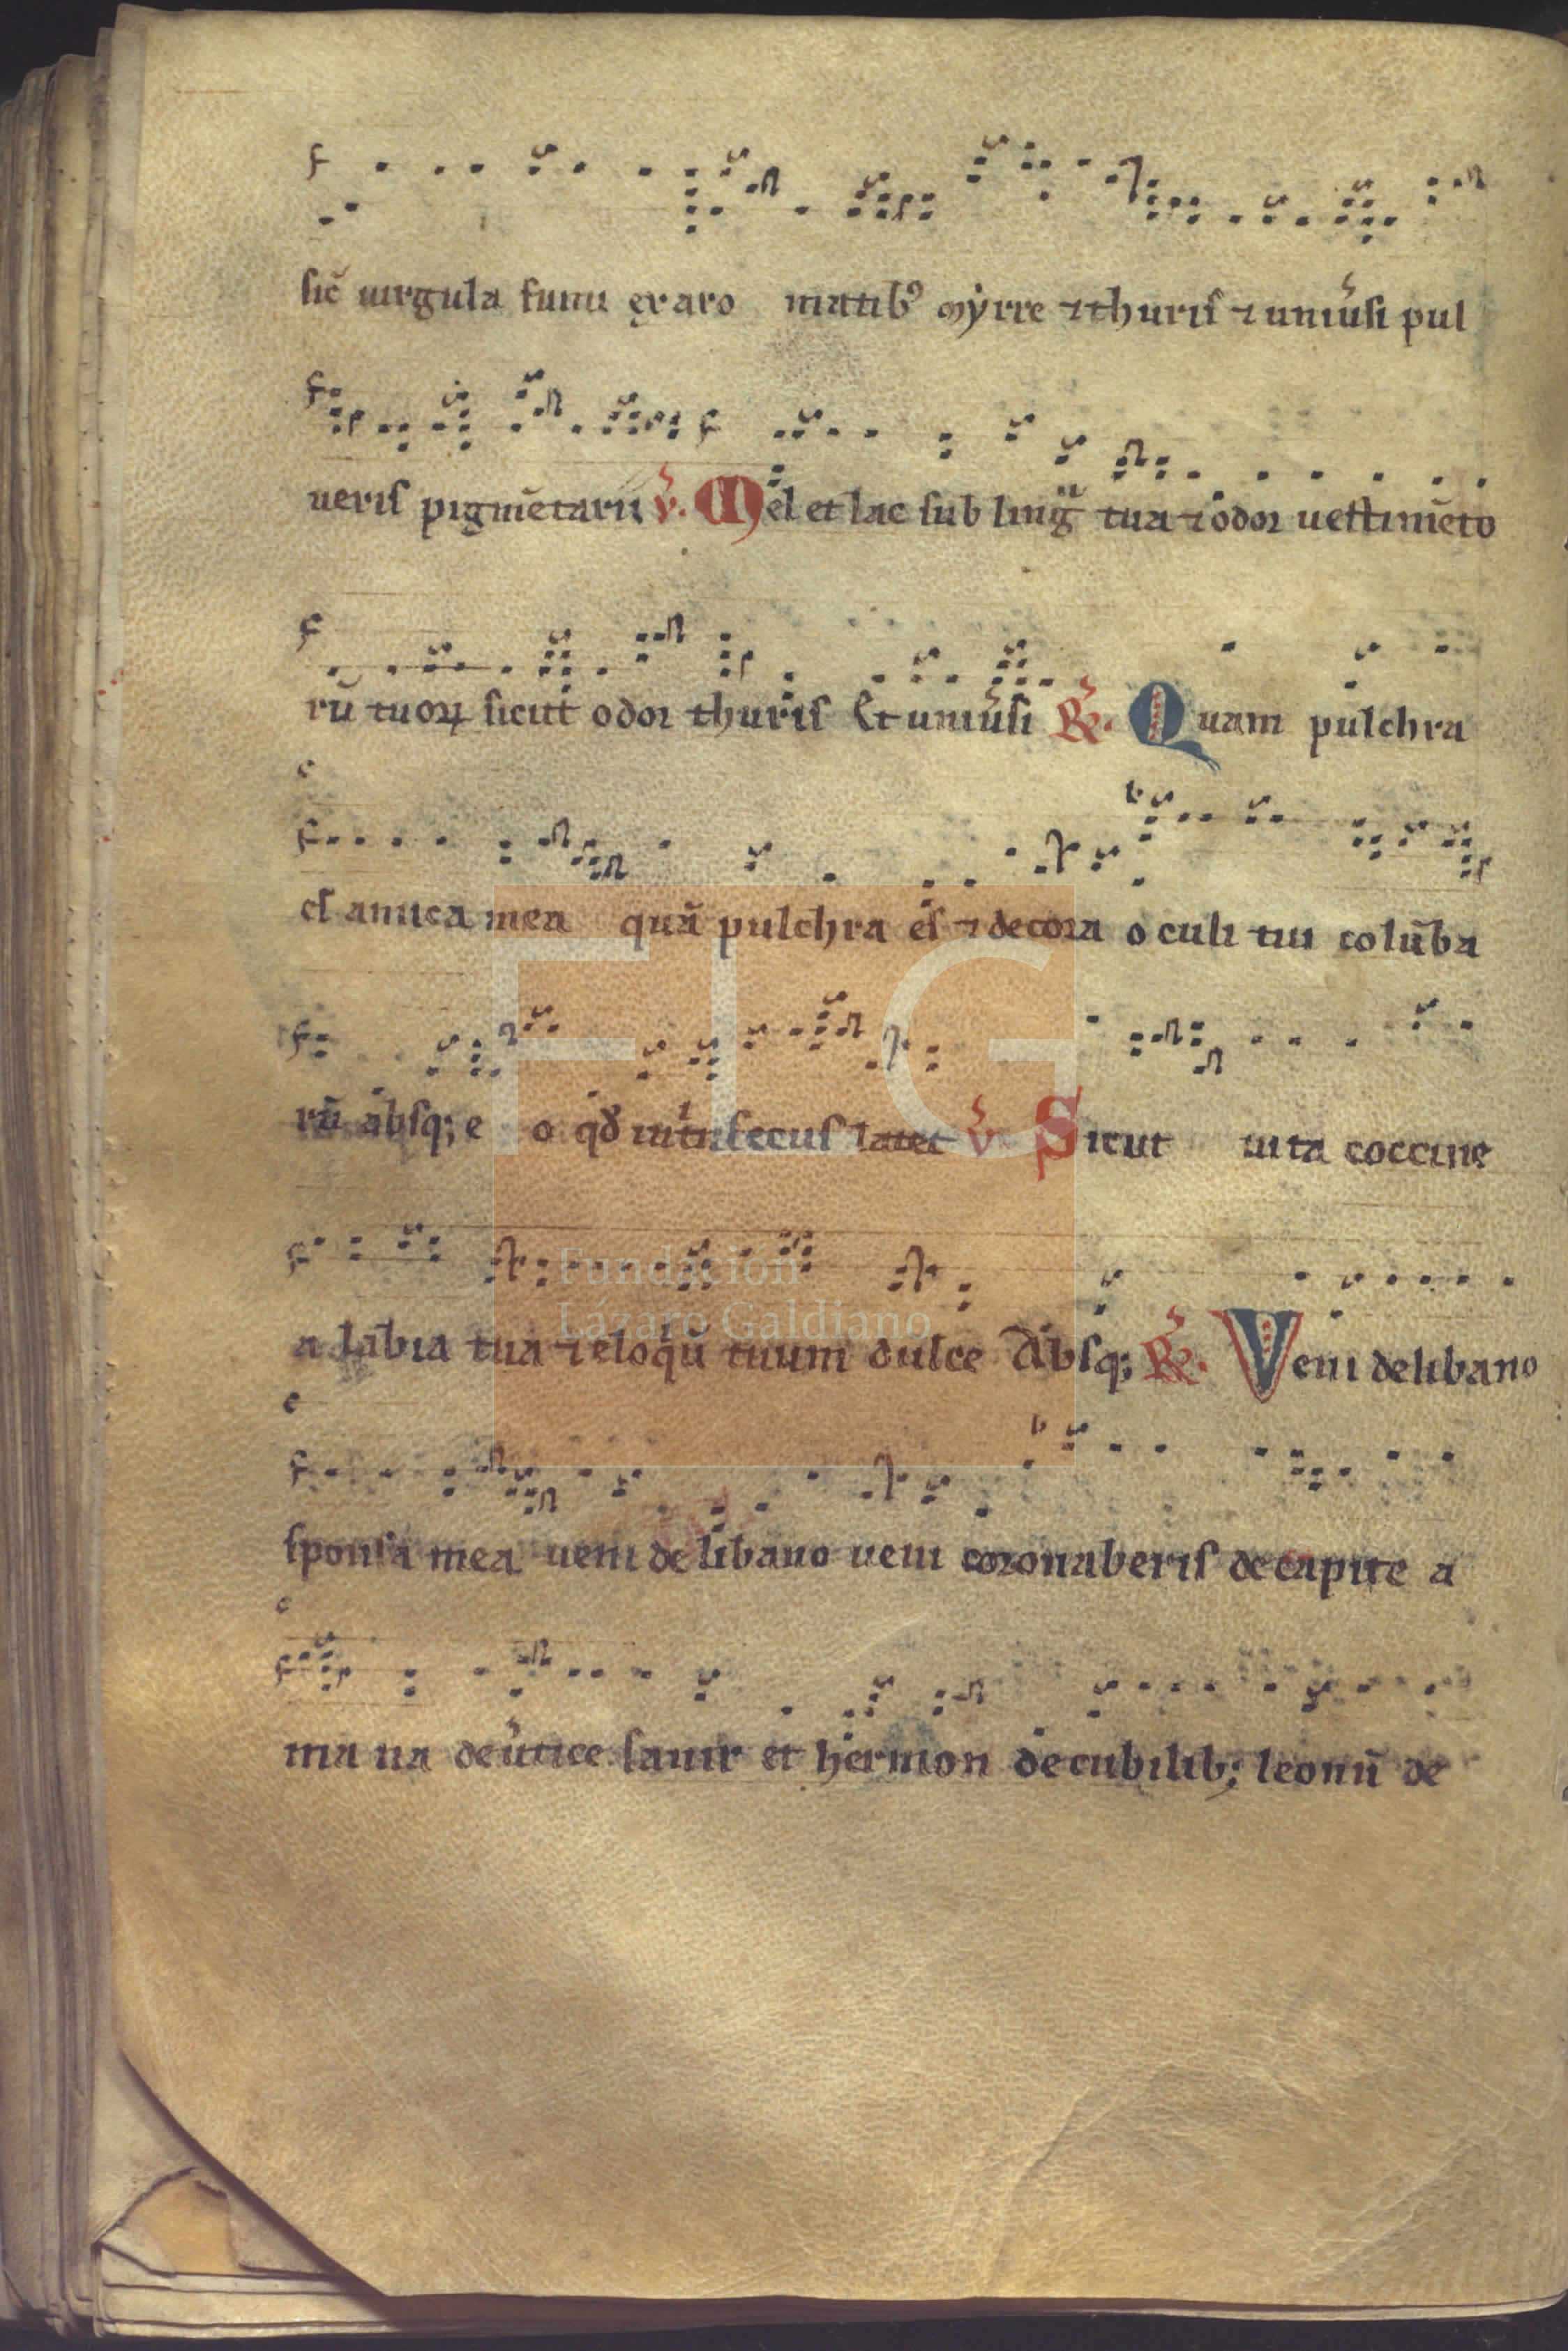 sic̄ uirgula fumi ęx aro matibꝰ mẏrre ⁊ thuris ⁊ uniu͛si pul
ueris pigmētarii v̓. Mel et lac sub lingᷓ tua ⁊ odoꝛ uestimēto
rū tuoꝝ sicut odoꝛ thuris Et uniu͛si R̓. Quam pulchra
es amica mea quā pulchra es ⁊ decoꝛa oculi tui colūba
rū absq; eo qđ int̓nsecus latet v̓ Sicut uita coccine
a labia tua ⁊ eloqͥū tuum dulce Absq; R̓. Veni de libano
sponsa mea ueni de libano ueni coꝛonaberis de capite a
mana de u͛tice sanir et hermon de cubilib; leonū de
FLG
Fundación
Lázaro Galdiano